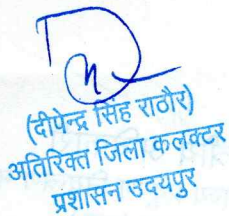 (दीपेन्द्र सिंह राठौर)
अतिरिक्त जिला कलक्टर
प्रशासन उदयपुर